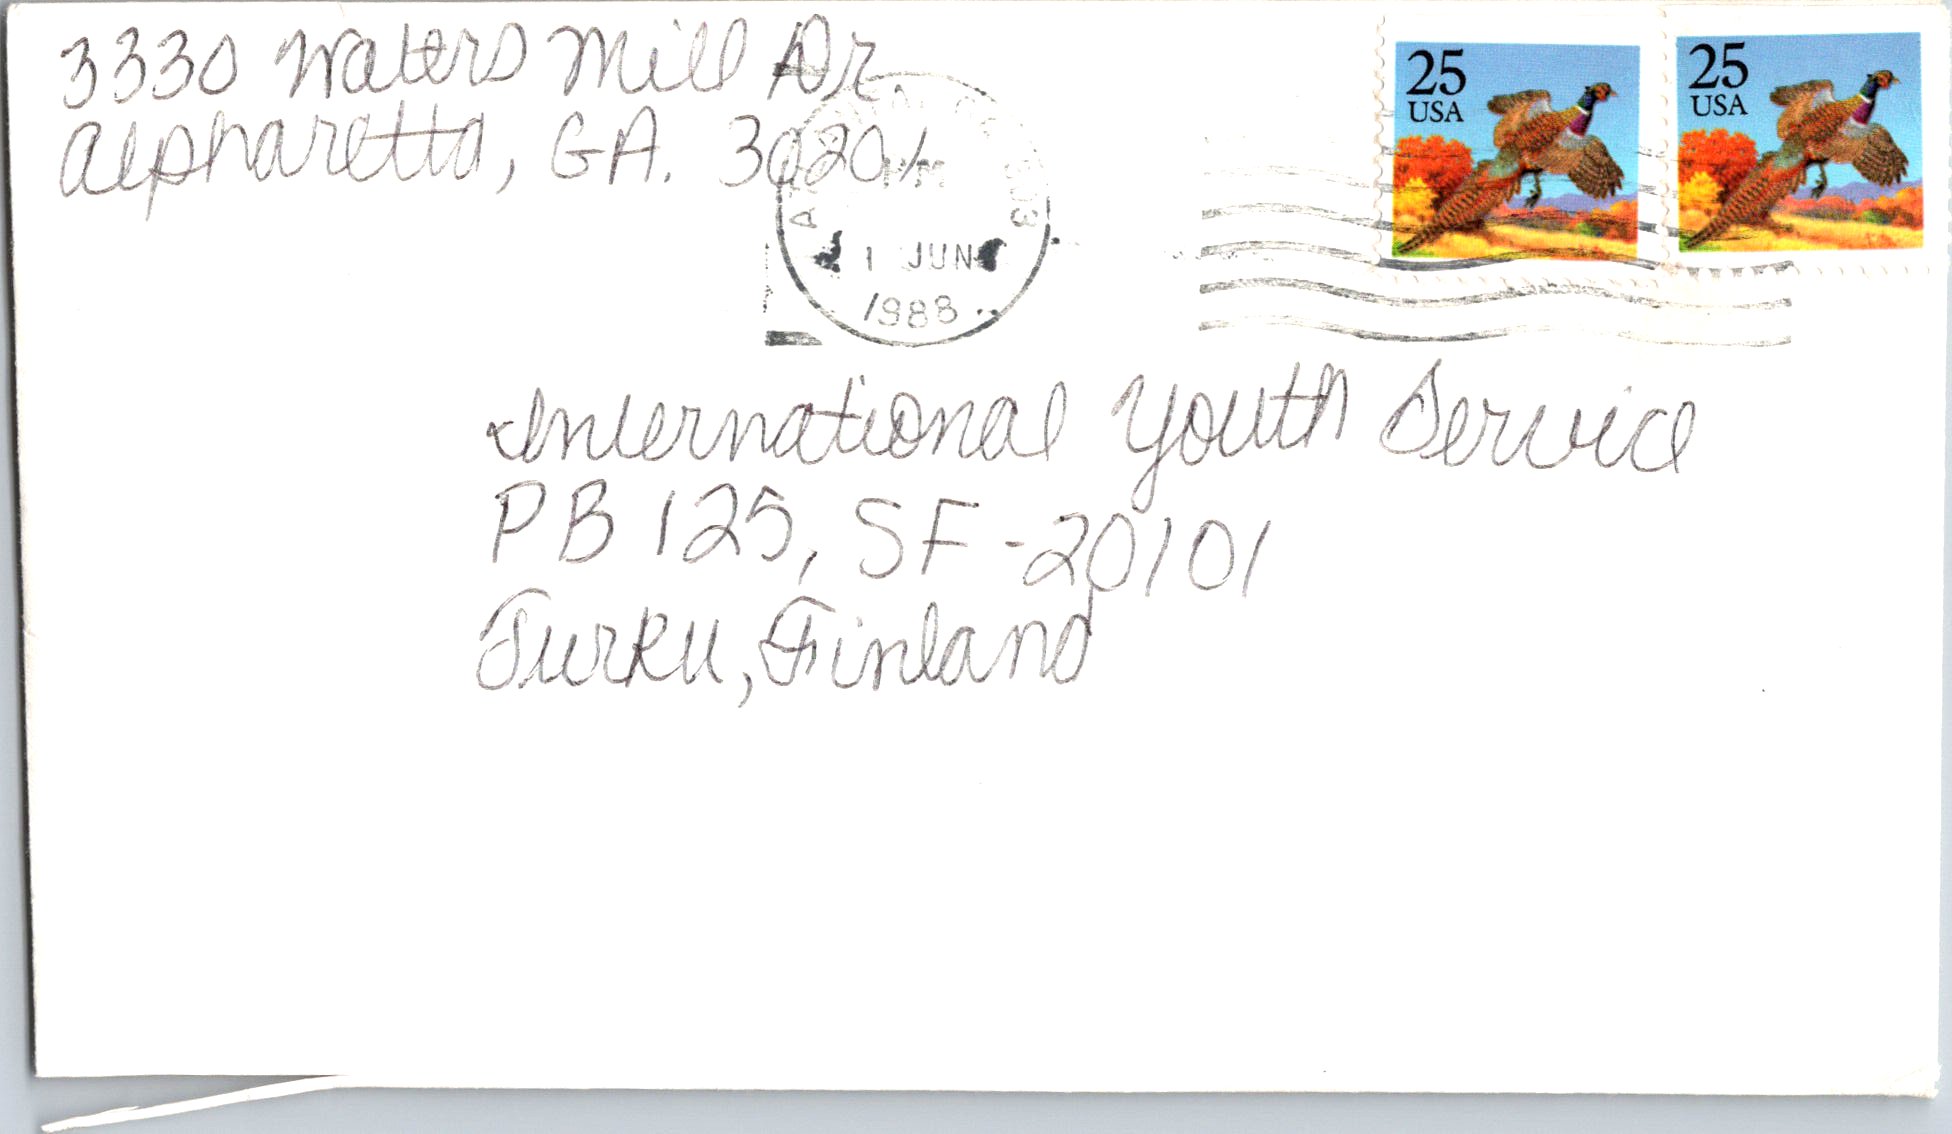 3330 Waters Mill Dr
Alpharetta, GA. 30201
25
USA
25
USA
1 JUN
1988
International Youth Service
PB 125, SF-20101
Turku, Finland